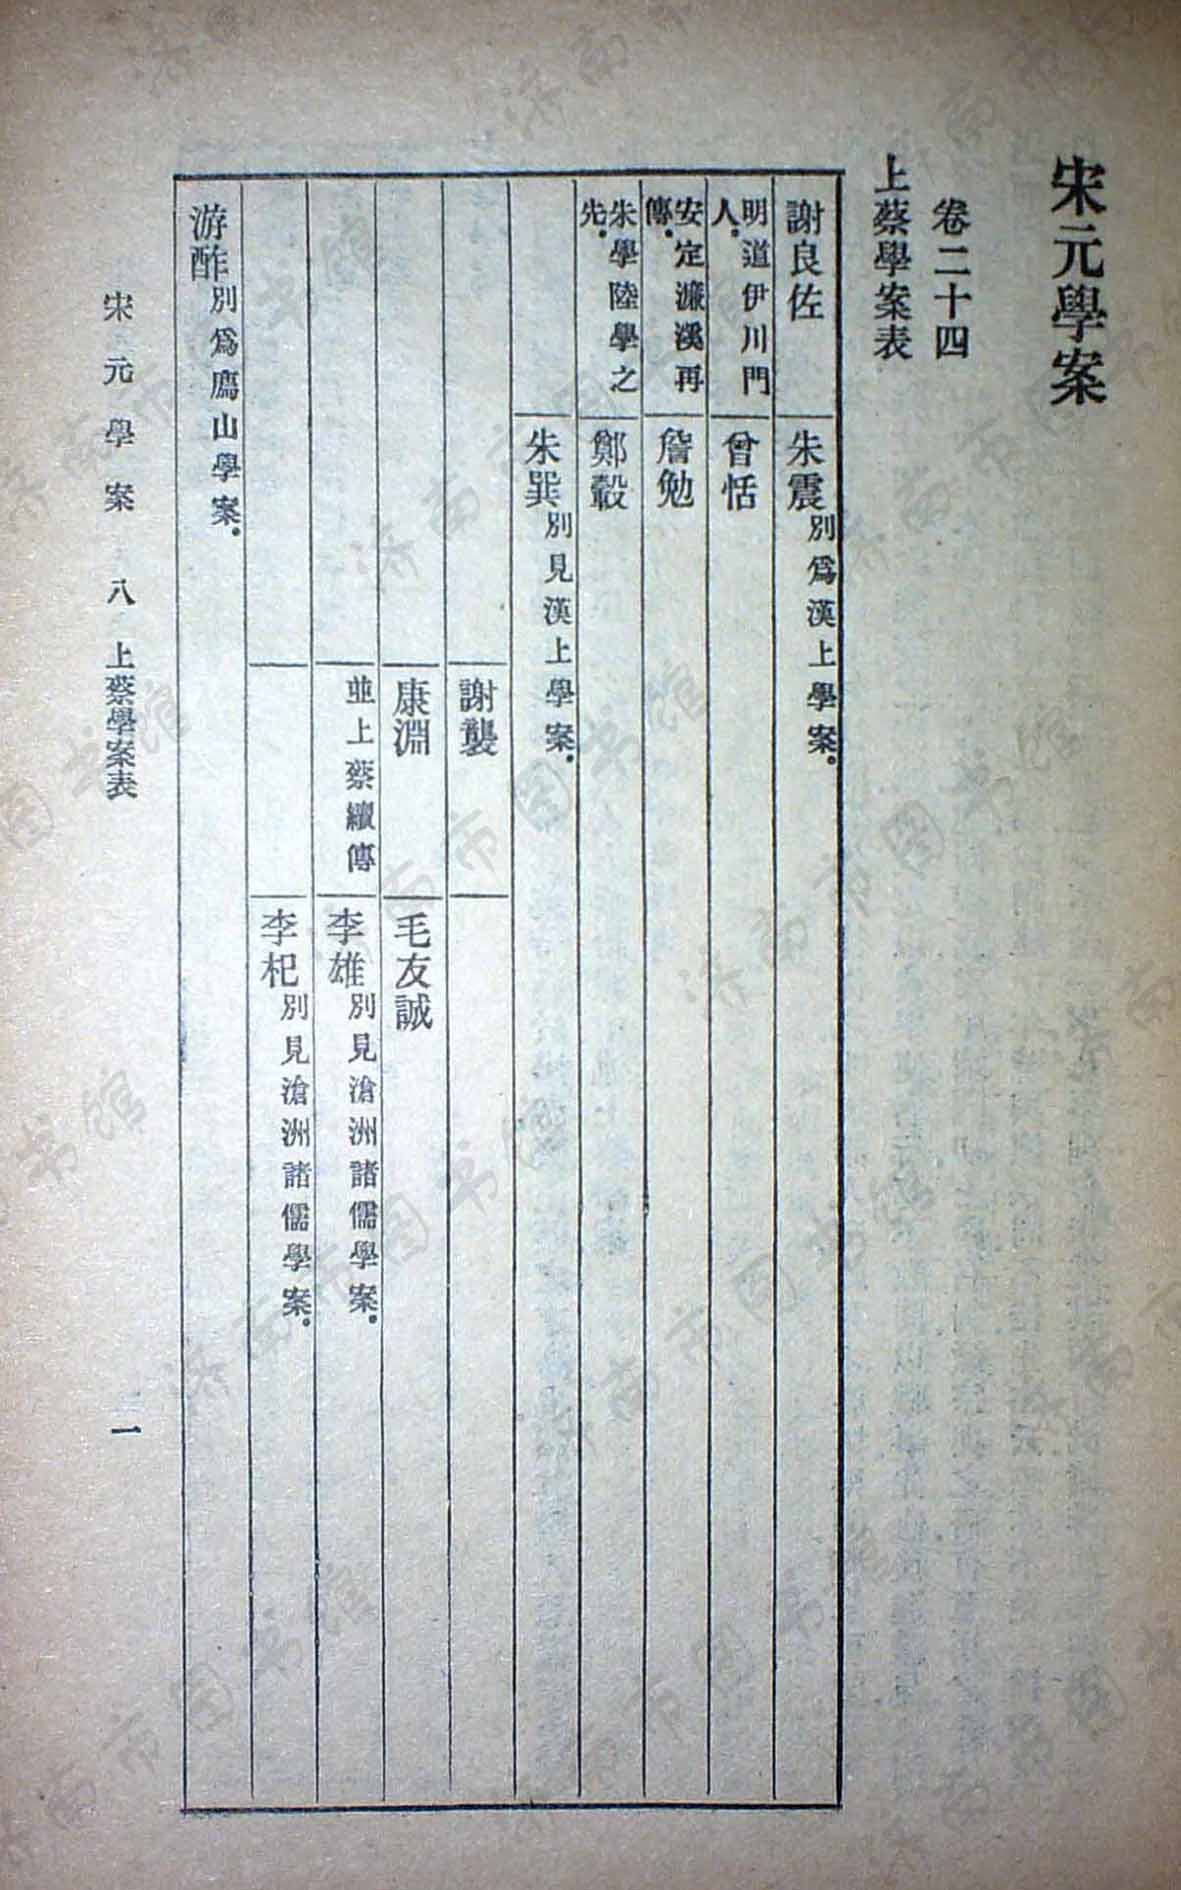 宋元學案
卷二十四
上蔡學案表
謝良佐
朱震別爲漢上學案。
明道伊川門
人。
曾恬
安定濂溪再
傳。
詹勉
朱學陸學之
先。
鄭轂
朱巽別見漢上學案。
謝襲
康淵
毛友誠
並上蔡續傳
李雄別見滄洲諸儒學案。
李杞別見滄洲諸儒學案。
游酢別爲廌山學案。
宋元學案 八 上蔡學案表 一
济南市图书馆